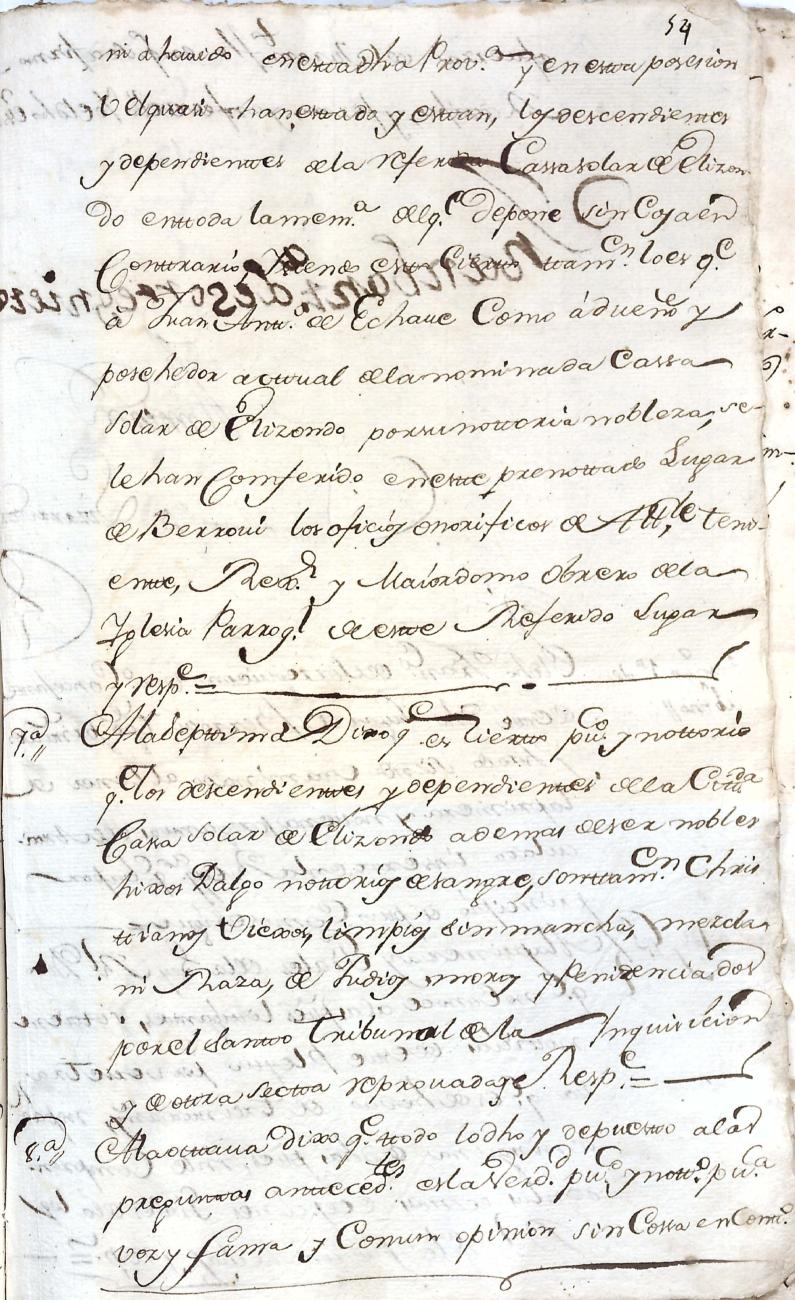 54
ni à hauido en esta dha Prov.ª y en esta posesion
Velquasi han estado y estan, los descendientes
y dependientes de la referida Cassa solar de Elizon
do en toda la mem.ª del q.e depone sin Cosa en
Contrario, Y tiene esto Cierto tam.en lo es q.e
à Juan Ant.º de Echaue Como à dueño y
poschedor actual de la nominada Cassa
solar de Elizondo por su nottoria nobleza, se
le han Comferido en este prenottado Lugar
de Berroui los oficios onorificos de Al.le teni
ente, Rex.r y Maiordomo obrero de la
Yglesia Parroq.l de este Referido Lugar
y resp.e =
7.ª A la septtima Dixo q.e es Cierto pu.co y nottorio
q.e los descendienttes y dependientes de la Citda
Cassa solar de Elizondo ademas de ser nobles
hixos Dalgo nottorios de sangre, son ttam.en Chris
ttianos Viexos, limpios sin mancha, mezcla
ni Raza, de Judios moros y Penitenciados
por el Santto Tribunal de la Inquisicion
y de ottra sectta reprouada y Resp.e =
8.ª A la octtaua dixo q.e ttodo lo dho y depuestto a las
pregunttas anteced.tes es la Verd.d pu.ca y nott.ª pu.ca
voz y fama y Comun opinion sin Cossa en Cont.º